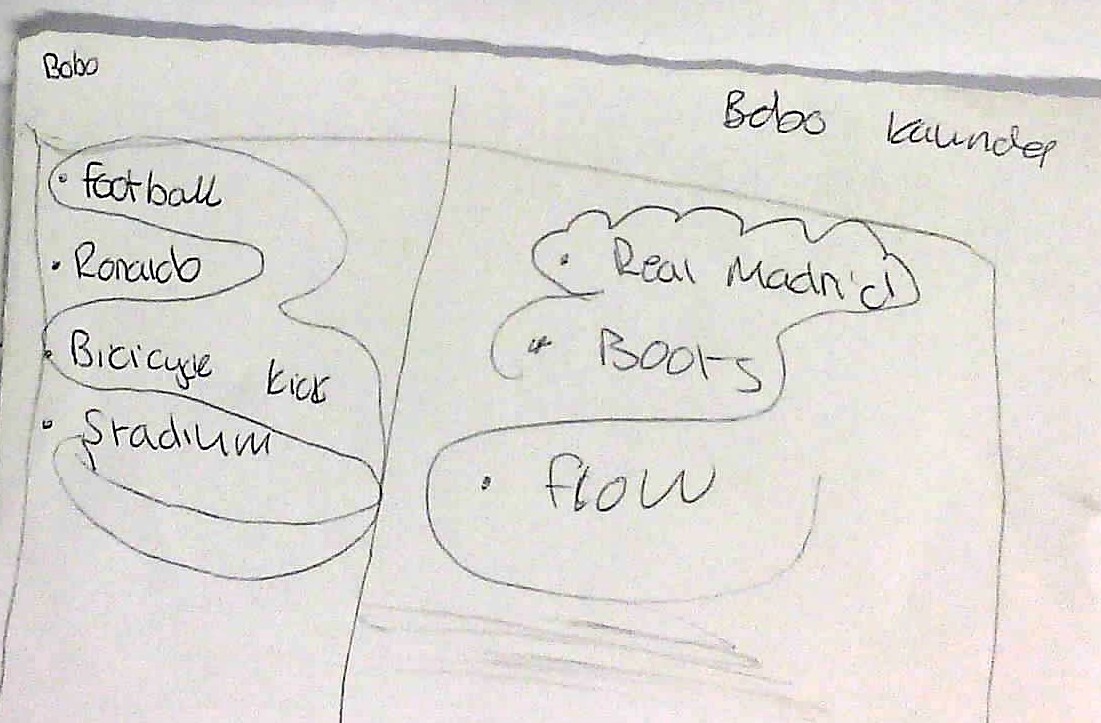 Bobo
Bobo Kaunda
• football
• Ronaldo
• Bicicycle kick
• Stadium
• Real Madrid
• Boots
• flow